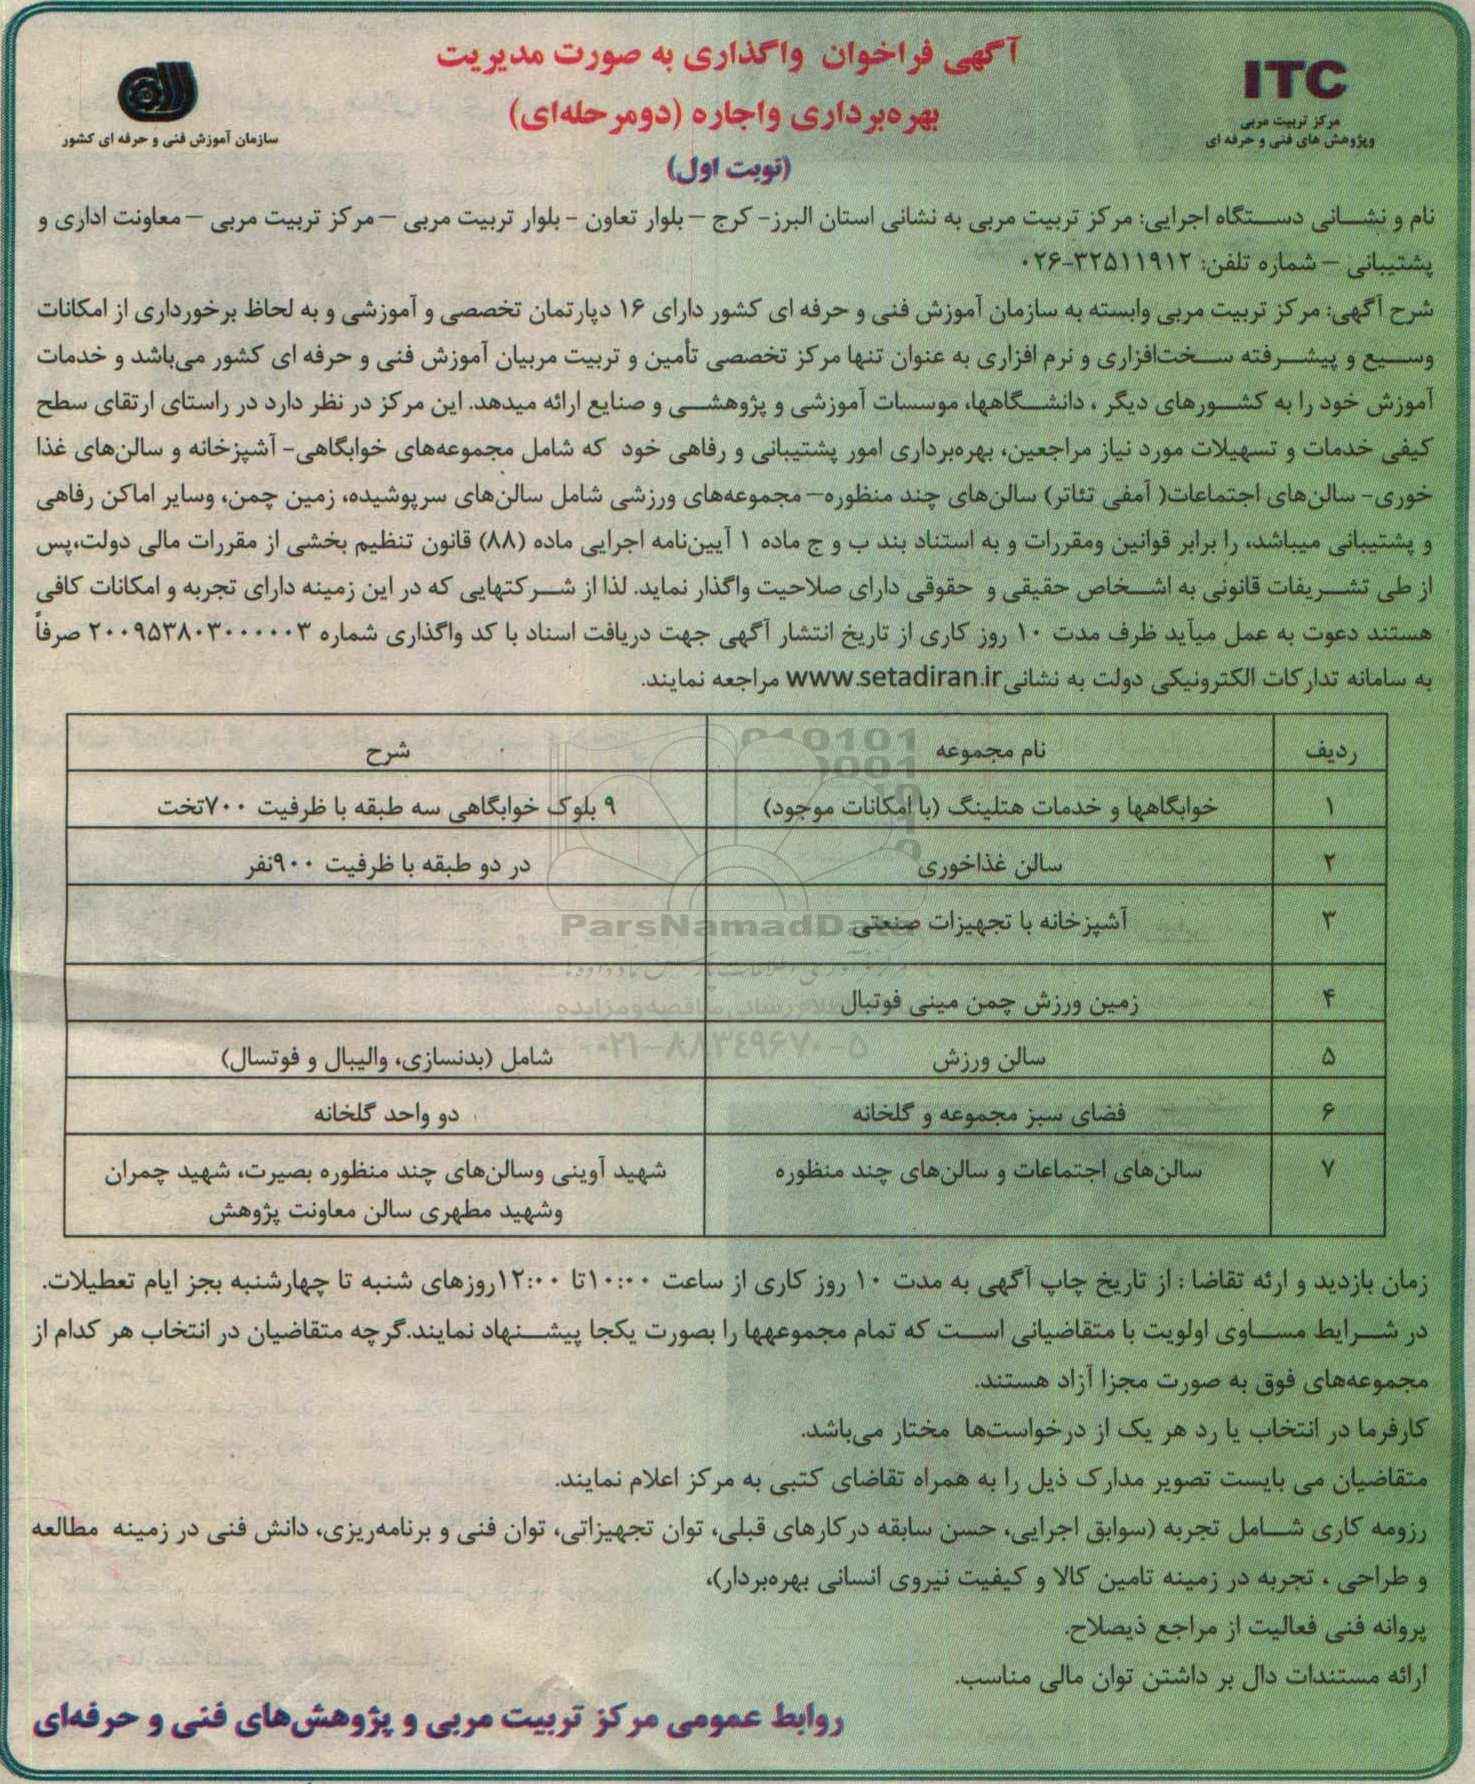 آگهی فراخوان واگذاری به صورت مدیریت
بهره‌برداری واجاره (دومرحله‌ای)
(نوبت اول)
ITC
مرکز تربیت مربی
وپژوهش های فنی و حرفه ای
سازمان آموزش فنی و حرفه ای کشور
نام و نشانی دستگاه اجرایی: مرکز تربیت مربی به نشانی استان البرز- کرج – بلوار تعاون - بلوار تربیت مربی – مرکز تربیت مربی – معاونت اداری و
پشتیبانی – شماره تلفن: ۳۲۵۱۱۹۱۲-۰۲۶
شرح آگهی: مرکز تربیت مربی وابسته به سازمان آموزش فنی و حرفه ای کشور دارای ۱۶ دپارتمان تخصصی و آموزشی و به لحاظ برخورداری از امکانات
وسیع و پیشرفته سخت‌افزاری و نرم افزاری به عنوان تنها مرکز تخصصی تأمین و تربیت مربیان آموزش فنی و حرفه ای کشور می‌باشد و خدمات
آموزش خود را به کشورهای دیگر ، دانشگاهها، موسسات آموزشی و پژوهشی و صنایع ارائه میدهد. این مرکز در نظر دارد در راستای ارتقای سطح
کیفی خدمات و تسهیلات مورد نیاز مراجعین، بهره‌برداری امور پشتیبانی و رفاهی خود که شامل مجموعه‌های خوابگاهی- آشپزخانه و سالن‌های غذا
خوری- سالن‌های اجتماعات( آمفی تئاتر) سالن‌های چند منظوره– مجموعه‌های ورزشی شامل سالن‌های سرپوشیده، زمین چمن، وسایر اماکن رفاهی
و پشتیبانی میباشد، را برابر قوانین ومقررات و به استناد بند ب و ج ماده ۱ آیین‌نامه اجرایی ماده (۸۸) قانون تنظیم بخشی از مقررات مالی دولت،پس
از طی تشریفات قانونی به اشخاص حقیقی و حقوقی دارای صلاحیت واگذار نماید. لذا از شرکتهایی که در این زمینه دارای تجربه و امکانات کافی
هستند دعوت به عمل میآید ظرف مدت ۱۰ روز کاری از تاریخ انتشار آگهی جهت دریافت اسناد با کد واگذاری شماره ۲۰۰۹۵۳۸۰۳۰۰۰۰۰۳ صرفاً
به سامانه تدارکات الکترونیکی دولت به نشانی www.setadiran.ir مراجعه نمایند.
ردیف نام مجموعه شرح
۱ خوابگاهها و خدمات هتلینگ (با امکانات موجود) ۹ بلوک خوابگاهی سه طبقه با ظرفیت ۷۰۰تخت
۲ سالن غذاخوری در دو طبقه با ظرفیت ۹۰۰نفر
۳ آشپزخانه با تجهیزات صنعتی
۴ زمین ورزش چمن مینی فوتبال
۵ سالن ورزش شامل (بدنسازی، والیبال و فوتسال)
۶ فضای سبز مجموعه و گلخانه دو واحد گلخانه
۷ سالن‌های اجتماعات و سالن‌های چند منظوره شهید آوینی وسالن‌های چند منظوره بصیرت، شهید چمران
وشهید مطهری سالن معاونت پژوهش
ParsNamadData
۰۲۱-۸۸۳۴۹۶۷۰-۵
زمان بازدید و ارئه تقاضا : از تاریخ چاپ آگهی به مدت ۱۰ روز کاری از ساعت ۱۰:۰۰تا ۱۲:۰۰روزهای شنبه تا چهارشنبه بجز ایام تعطیلات.
در شرایط مساوی اولویت با متقاضیانی است که تمام مجموعهها را بصورت یکجا پیشنهاد نمایند.گرچه متقاضیان در انتخاب هر کدام از
مجموعه‌های فوق به صورت مجزا آزاد هستند.
کارفرما در انتخاب یا رد هر یک از درخواست‌ها مختار می‌باشد.
متقاضیان می بایست تصویر مدارک ذیل را به همراه تقاضای کتبی به مرکز اعلام نمایند.
رزومه کاری شامل تجربه (سوابق اجرایی، حسن سابقه درکارهای قبلی، توان تجهیزاتی، توان فنی و برنامه‌ریزی، دانش فنی در زمینه مطالعه
و طراحی ، تجربه در زمینه تامین کالا و کیفیت نیروی انسانی بهره‌بردار)،
پروانه فنی فعالیت از مراجع ذیصلاح.
ارائه مستندات دال بر داشتن توان مالی مناسب.
روابط عمومی مرکز تربیت مربی و پژوهش‌های فنی و حرفه‌ای